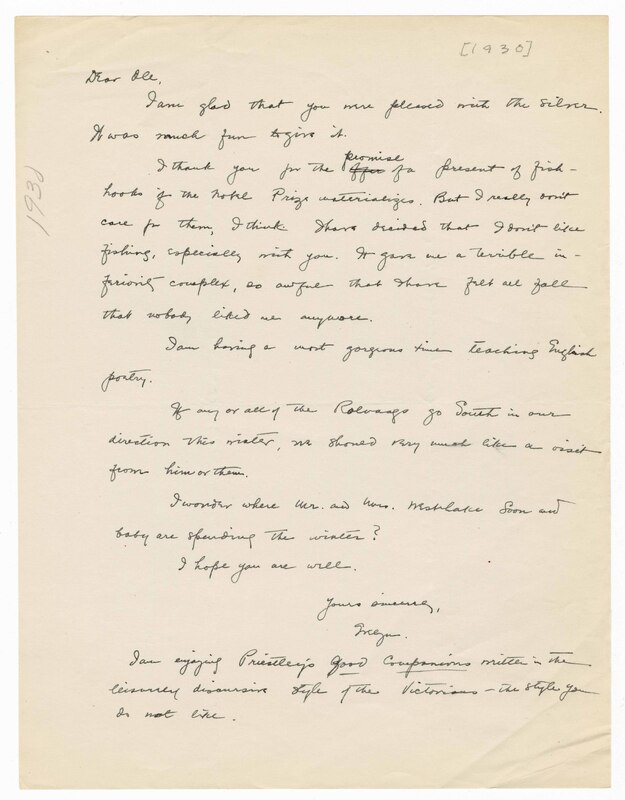 [1930]
1930
Dear Ole,
I am glad that you were pleased with the silver.
It was much fun to give it.
I thank you for the promise of a present of fish-
hooks if the Nobel Prize materializes. But I really don't
care for them, I think. I have decided that I don't like
fishing, especially with you. It gave me a terrible in-
feriority complex, so awful that I have felt all fall
that nobody liked me anymore.
I am having a most gorgeous time teaching English
poetry.
If any or all of the Rolvaags go South in our
direction this winter, we should very much like a visit
from him or them.
I wonder where Mr. and Mrs. Westlake Soon and
baby are spending the winter?
I hope you are well.
Yours sincerely,
I am enjoying Priestley's Good Companions written in the
leisurely discursive style of the Victorians – the style you
do not like.